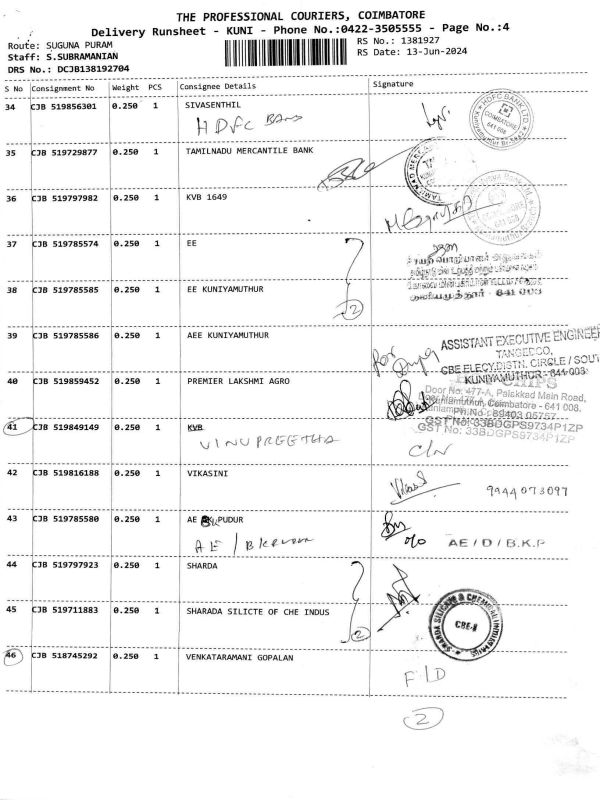 THE PROFESSIONAL COURIERS, COIMBATORE
Delivery Runsheet - KUNI - Phone No.:0422-3505555 - Page No.:4
Route: SUGUNA PURAM
RS No.: 1381927
Staff: S.SUBRAMANIAN
RS Date: 13-Jun-2024
DRS No.: DCJB138192704
S No Consignment No Weight PCS Consignee Details Signature
34 CJB 519856301 0.250 1 SIVASENTHIL
HDFC Bank
HDFC BANK LTD
COIMBATORE
641 008
35 CJB 519729877 0.250 1 TAMILNADU MERCANTILE BANK
36 CJB 519797982 0.250 1 KVB 1649
37 CJB 519785574 0.250 1 EE
38 CJB 519785585 0.250 1 EE KUNIYAMUTHUR
2
குனியமுத்தூர் - 641 008
39 CJB 519785586 0.250 1 AEE KUNIYAMUTHUR
for
ASSISTANT EXECUTIVE ENGINEER
TANGEDCO,
CBE ELECY.DISTN. CIRCLE / SOUT
KUNIYAMUTHUR - 641 008
40 CJB 519859452 0.250 1 PREMIER LAKSHMI AGRO
Door No: 477-A, Palakkad Main Road,
Kuniamuthur, Coimbatore - 641 008.
Ph.No : 89403 05757
GST No: 33BDGPS9734P1ZP
41 CJB 519849149 0.250 1 KVB
VINUPREETHA
C/N
42 CJB 519816188 0.250 1 VIKASINI
9944073097
43 CJB 519785580 0.250 1 AE PUDUR
AE / BK PUDUR
o/o AE / D / B.K.P
44 CJB 519797923 0.250 1 SHARDA
45 CJB 519711883 0.250 1 SHARADA SILICTE OF CHE INDUS
2
SHARDA SILICATE & CHEMICAL INDUSTRIES
CBE-8
46 CJB 518745292 0.250 1 VENKATARAMANI GOPALAN
F/D
2